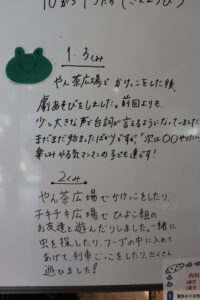 1.3くみ
やん茶広場で かけっこをした後、
劇あそびをしました。前回よりも、
少し大きな声で台詞が言えるようになっていました
まだまだ始まったばかりですが、「次は〇〇やりたい
楽しみ やる気マンマンの子ども達です！
2くみ
やん茶広場でかけっこをしたり、
チキチキ広場で ひよこ組の
お友達と遊んだりしました。一緒に
虫を探したり、フープの中に入れて
あげて、列車ごっこをしたり、たくさん
遊びました！
内科